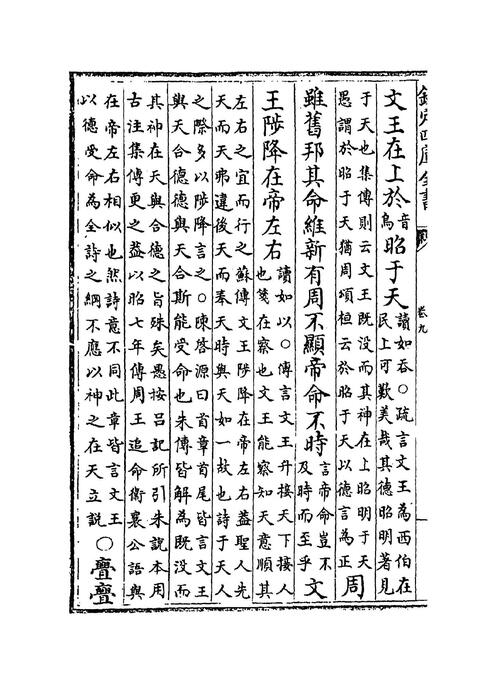 欽定四庫全書
卷九
文王在上於音烏昭于天讀如吞○疏言文王為西伯在民上可歎美哉其德昭明著見
于天也集傳則云文王既没而其神在上昭明于天愚謂於昭于天猶周頌桓云於昭于天以德言為正周
雖舊邦其命維新有周不顯帝命不時言帝命豈不及時而至乎文
王陟降在帝左右讀如以○傳言文王升接天下接人也箋在察也文王能察知天意順其
左右之宜而行之蘇傳文王陟降在帝左右葢聖人先天而天弗違後天而奉天時與天如一故也詩于天人
之際多以陟降言之○陳啓源曰首章首尾皆言文王與天合德德與天合斯能受命也朱傳皆解為既没而
其神在天與合德之旨殊矣愚按吕記所引朱說本用古注集傳更之葢以昭七年傳周王追命衛襄公語與
在帝左右相似也然詩意不同此章皆言文王以德受命為全詩之綱不應以神之在天立說○亹亹